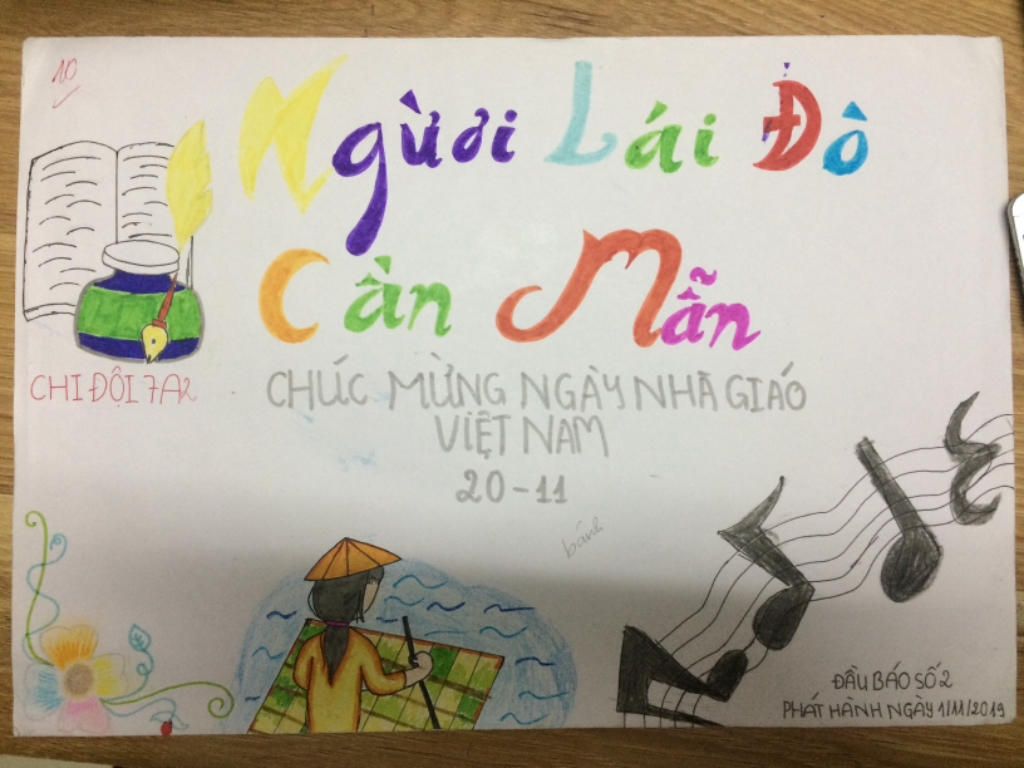 10
Người Lái Đò
Cần Mẫn
CHI ĐỘI 7A2
CHÚC MỪNG NGÀY NHÀ GIÁO
VIỆT NAM
20-11
bánh
ĐẦU BÁO SỐ 2
PHÁT HÀNH NGÀY 1/11/2019